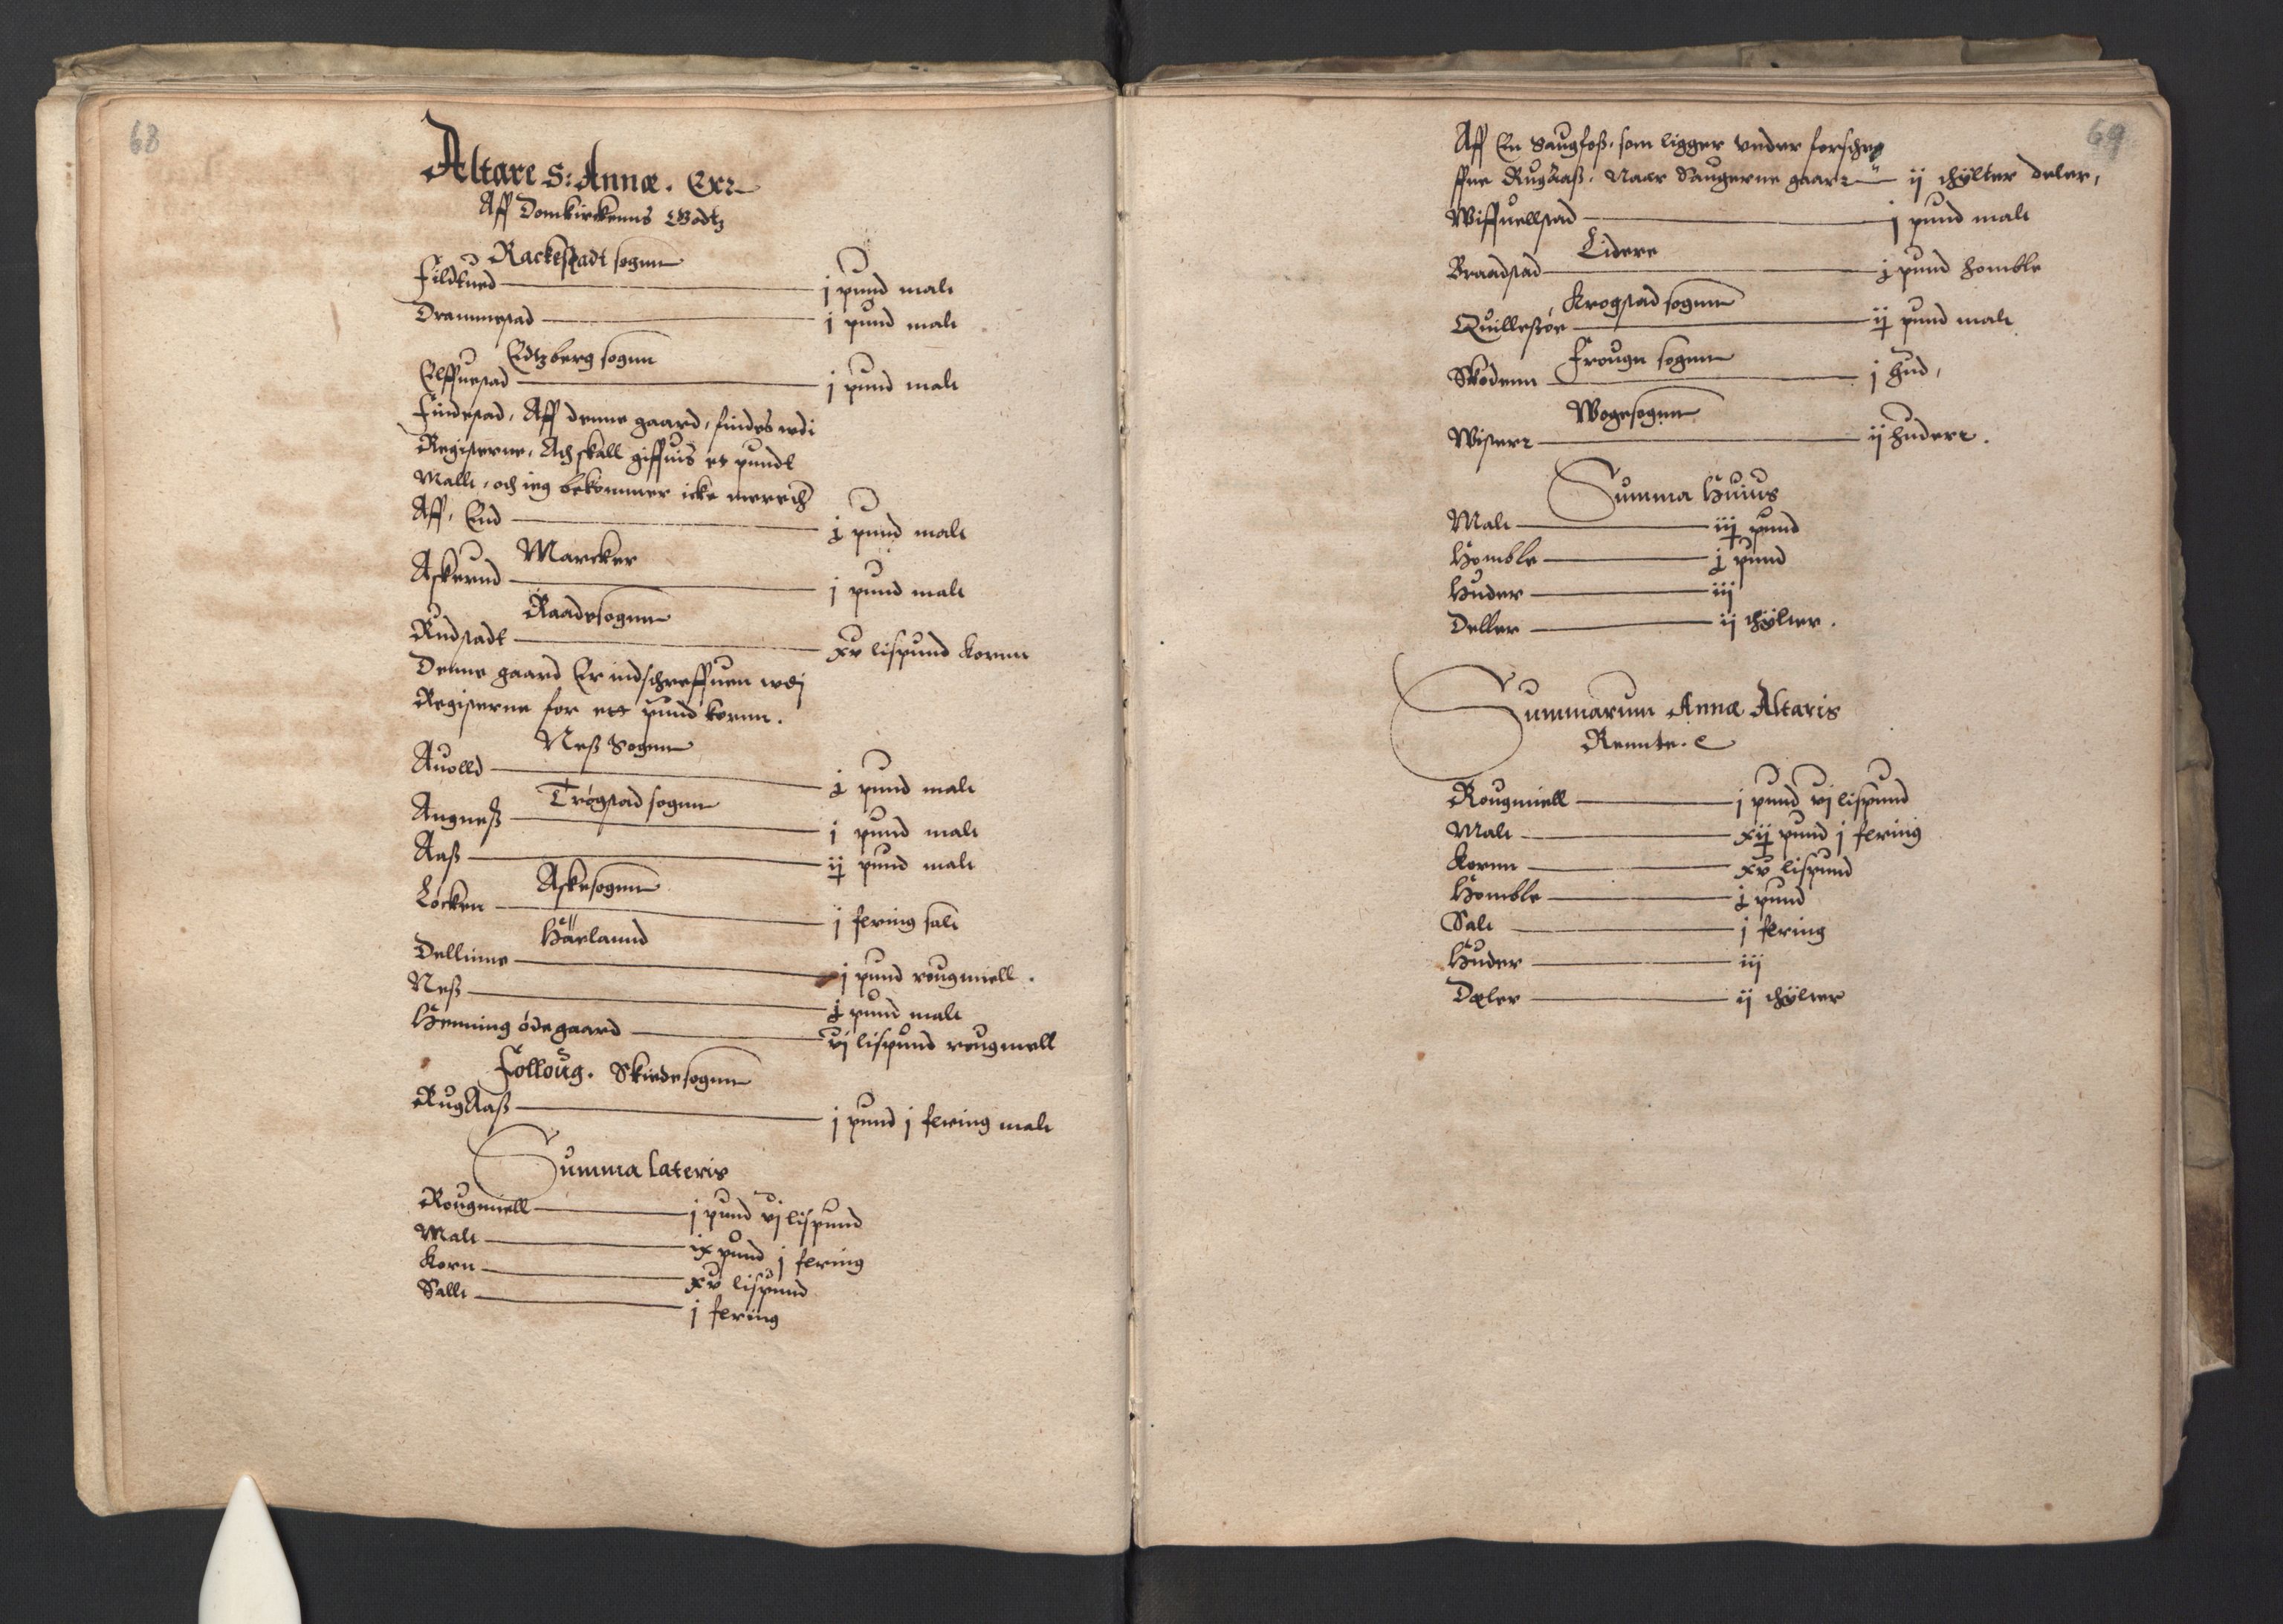 68
Altare S: Annæ. Err
Aff Domkirckenns Godtz
Rackestadt sognn
Fildtued — j pund malt
Drammestad — j pund malt
Edtzberg sognn
Elffuestad — j pund malt
Findestad, Aff denne gaard, findes wdi
Registerne, Ath skall giffuis et pundt
Mallt, och ieg bekommer icke mere
Aff, End — j pund malt
Marcker
Askerud — j pund malt
Raadesognn
Rudstadt — xv lispund kornn
Denne gaard Er indschreffuen wdj
Registerne for ett pund kornn.
Neß Sognn
Auolld — j pund malt
Trøgstad sognn
Angneß — j pund malt
Aaß — ij pund malt
Askesognn
Løcken — j fering salt
Härlannd
Dellinne — j pund rougmiell.
Neß — j pund malt
Henning ødegaard — vj lispund rougmell
Folloug. Skiedesognn
RugAaß — j pund j fering malt
Summa Lateris
Rougmiell — j pund vj lispund
Malt — ix pund j fering
Korn — xv lispund
Sallt — j fering
69
Aff En Saugfoß, som ligger vnder forschre
ffne RugAaß, Naar Saugerne gaar — ij thÿlter deler,
Wiffuellstad — j pund malt
Lidere
Braadstad — j pund homble
Krogstad sognn
Quillesøe — ij pund malt
Frougn sognn
Skodenn — j hud,
Wogesognn
Wister — ij huder.
Summa Huius
Malt — iij pund
Homble — j pund
Huder — iij
Deller — ij thÿlter.
Summarum Annæ Altaris
Rennte.
Rougmiell — j pund vj lispund
Malt — xij pund j fering
Kornn — xv lispund
Homble — j pund
Salt — j fering
Huder — iij
Dæler — ij thÿlter